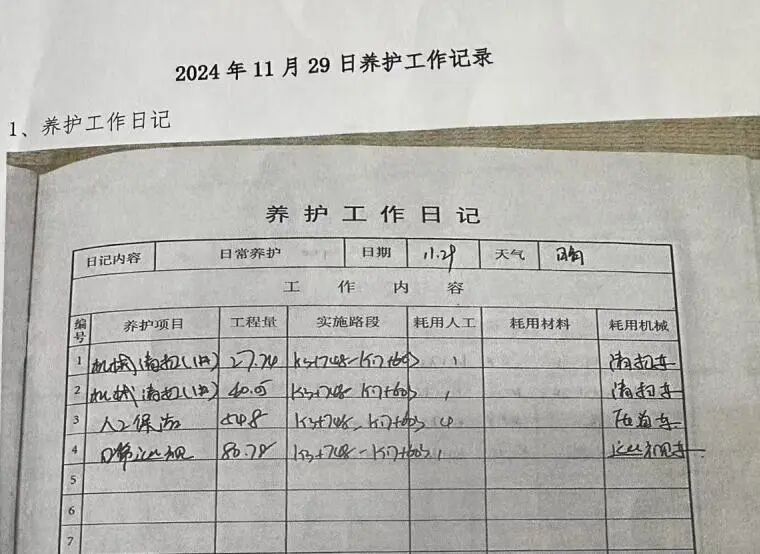 2024 年 11 月 29 日养护工作记录
1、养护工作日记
养 护 工 作 日 记
日记内容 日常养护 日期 11.29 天气 晴
工 作 内 容
编号 养护项目 工程量 实施路段 耗用人工 耗用材料 耗用机械
1 机械清扫 27.74 K3+748-K17+603 1 清扫车
2 机械清扫 K3+748-K17+603 1 清扫车
3 人工保洁 548 K3+748-K17+603 4
4 日常巡视 80.78 K3+748-K17+603 1 巡视车
5
6
7